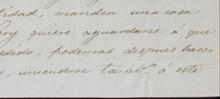 ridad, manden una cosa
quiero aguardarse á que
pedido, podemos despues hacer
, uniendose tamb.ⁿ á este